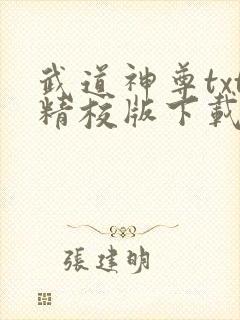 武道神尊txt
精校版下載
張建明